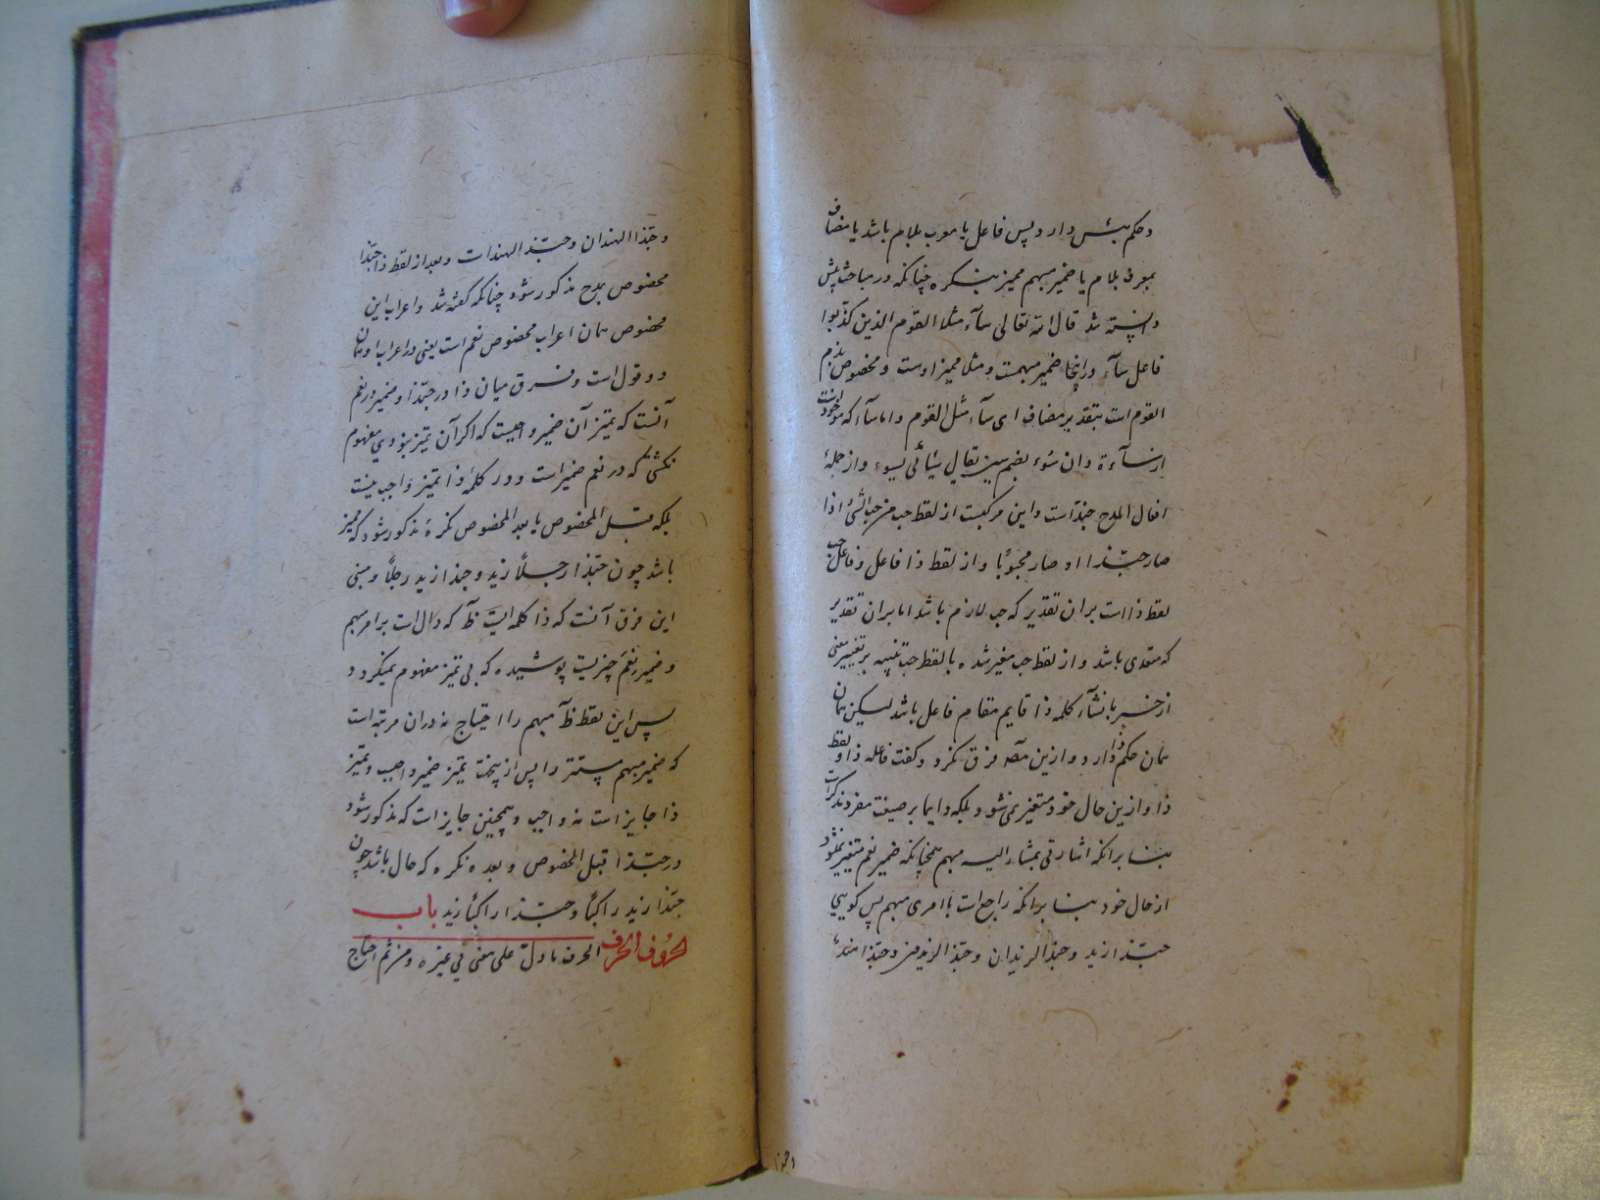 وحکم بئس دارد پس فاعل یا معرب بلام باشد یا مضاف
بمعرف بلام یا ضمیر مبهم ممیز بنکره چنانکه در مباحث پیش
دانسته شد قال الله تعالی سآء مثلا القوم الذین کذبوا
فاعل سآء در اینجا ضمیر مبهمست و مثلا ممیز اوست و مخصوص بذم
القوم است بتقدیر مضاف ای سآء مثل القوم و اما سآء که ماخوذ است
از سآءة و ان سوء بضم سین یقال سائی یسوء و از جملهٔ
افعال المدح حبذا است و این مرکبست از لفظ حب من حب الشئ اذا
صار حبیبا او صار محبوبًا و از لفظ ذا فاعل و فاعل حب
لفظ ذا است بران تقدیر که حب لازم باشد اما بران تقدیر
که متعدی باشد و از لفظ حب مغیر شده با لفظ حب تنبیه بر تغییر معنی
از خبر بانشآء کلمه ذا قایم مقام فاعل باشد لیکن همان
همان حکم دارد و ازین مصه فرق نکرد و گفت فاعله ذا و لفظ
ذا و ازین حال خود متغیر نمی‌شود بلکه دایما بر صیغت مفرد مذکر است
بنا برانکه اشارتی بمشار الیه مبهم همچنانکه ضمیر نعم متغیر نمیشود
از حال خود بنا برانکه راجع است با امری مبهم پس گویی
حبذا زید و حبذا الزیدان و حبذا الزیدون و حبذا هند
وحبذا الهندان وحبذا الهندات و بعد از لفظ ذا حبذا
مخصوص بمدح مذکور شود چنانکه گفته شد و اعراب این
مخصوص همان اعراب مخصوص نعم است یعنی در اعراب او همان
دو قول است و فرق میان ذا در حبذا و ضمیر در نعم
آنست که تمییز آن ضمیر واجبست که اگر آن تمییز نبودی مفهوم
نگشتی که در نعم ضمیر است و در کلمه ذا تمییز واجب نیست
بلکه قبل المخصوص یا بعد المخصوص نکرهٔ مذکور شود که ممیز
باشد چون حبذا رجلاً زید و حبذا زید رجلاً و مبنی
این فرق آنست که ذا کلمه ایست ظآ که دال است بر امر مبهم
و ضمیر نعم چیزیست پوشیده که بی تمیز مفهوم نمیگردد
پس این لفظ ظآ مبهم را احتیاج نه دران مرتبه است
که ضمیر مبهم مستتر را پس از پیجت تمیز ضمیر واجب و تمیز
ذا جایز است نه واجب و همچنین جایز است که مذکور شود
در حبذا قبل المخصوص و بعده نکره که حال باشد چون
حبذا زید راکبًا و حبذا راکبًا زید باب
الحروف الحرف الحرف ما دل علی معنی فی غیره ومن ثم احتاج